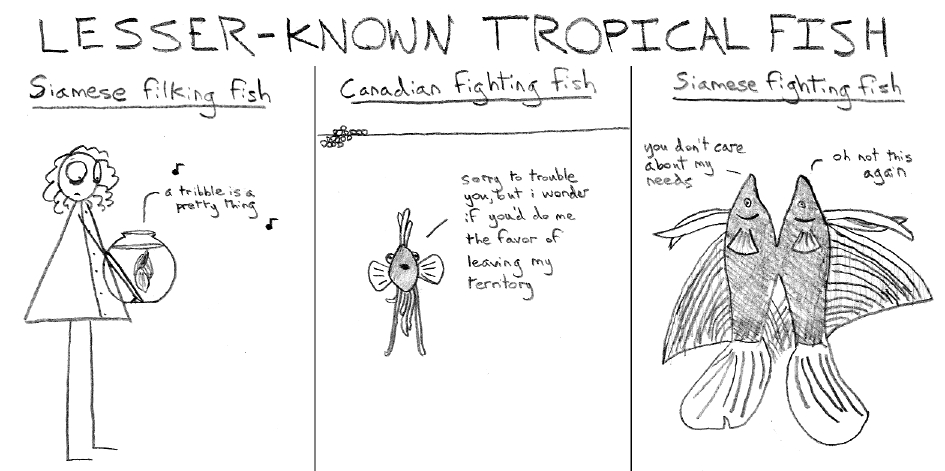 LESSER-KNOWN TROPICAL FISH
Siamese filking fish
a tribble is a
pretty thing
Canadian fighting fish
sorry to trouble
you, but i wonder
if you'd do me
the favor of
leaving my
territory
Siamese fighting fish
you don't care
about my
needs
oh not this
again